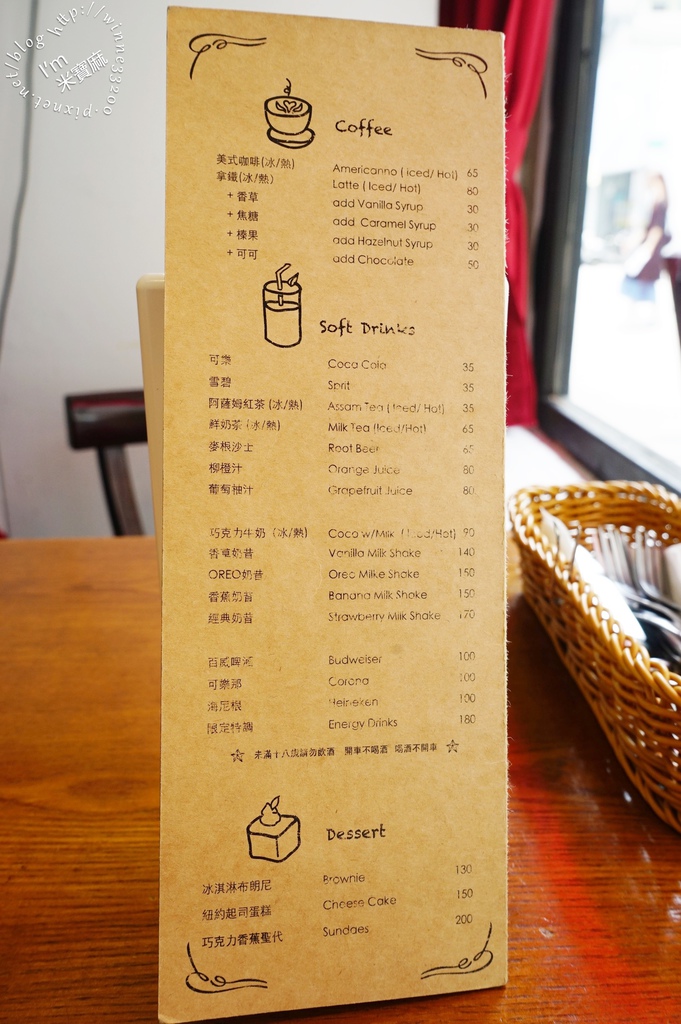 http://winne33200.pixnet.net/blog
I'm
米寶麻
Coffee
美式咖啡(冰/熱) Americanno ( Iced/ Hot) 65
拿鐵(冰/熱) Latte ( Iced/ Hot) 80
+ 香草 add Vanilla Syrup 30
+ 焦糖 add Caramel Syrup 30
+ 榛果 add Hazelnut Syrup 30
+ 可可 add Chocolate 50
Soft Drinks
可樂 Coca Cola 35
雪碧 Sprit 35
阿薩姆紅茶 (冰/熱) Assam Tea ( Iced/ Hot) 35
鮮奶茶 (冰/熱) Milk Tea (Iced/Hot) 65
麥根沙士 Root Beer 65
柳橙汁 Orange Juice 80
葡萄柚汁 Grapefruit Juice 80
巧克力牛奶 (冰/熱) Coco w/Milk (Iced/Hot) 90
香草奶昔 Vanilla Milk Shake 140
OREO奶昔 Oreo Milke Shake 150
香蕉奶昔 Banana Milk Shake 150
經典奶昔 Strawberry Milk Shake 170
百威啤酒 Budweiser 100
可樂那 Corona 100
海尼根 Heineken 100
限定特調 Energy Drinks 180
未滿十八歲請勿飲酒 開車不喝酒 喝酒不開車
Dessert
冰淇淋布朗尼 Brownie 130
紐約起司蛋糕 Cheese Cake 150
巧克力香蕉聖代 Sundaes 200